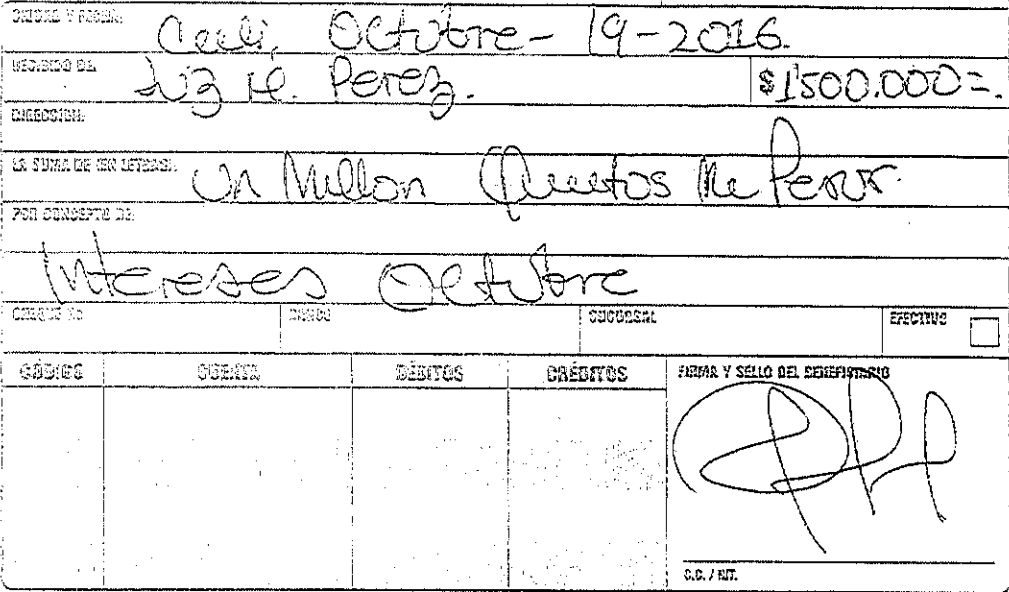 CIUDAD Y FECHA: Cali, Octubre - 19-2016.
RECIBIDO DE: Luz H. Perez. $1'500.000=.
DIRECCIÓN:
LA SUMA DE (EN LETRAS): Un Millon Quintos Mil Pesos.
POR CONCEPTO DE:
Intereses Octubre
CHEQUE No. BANCO SUCURSAL EFECTIVO
CÓDIGO CUENTA DÉBITOS CRÉDITOS FIRMA Y SELLO DEL BENEFICIARIO
C.C. / NIT.